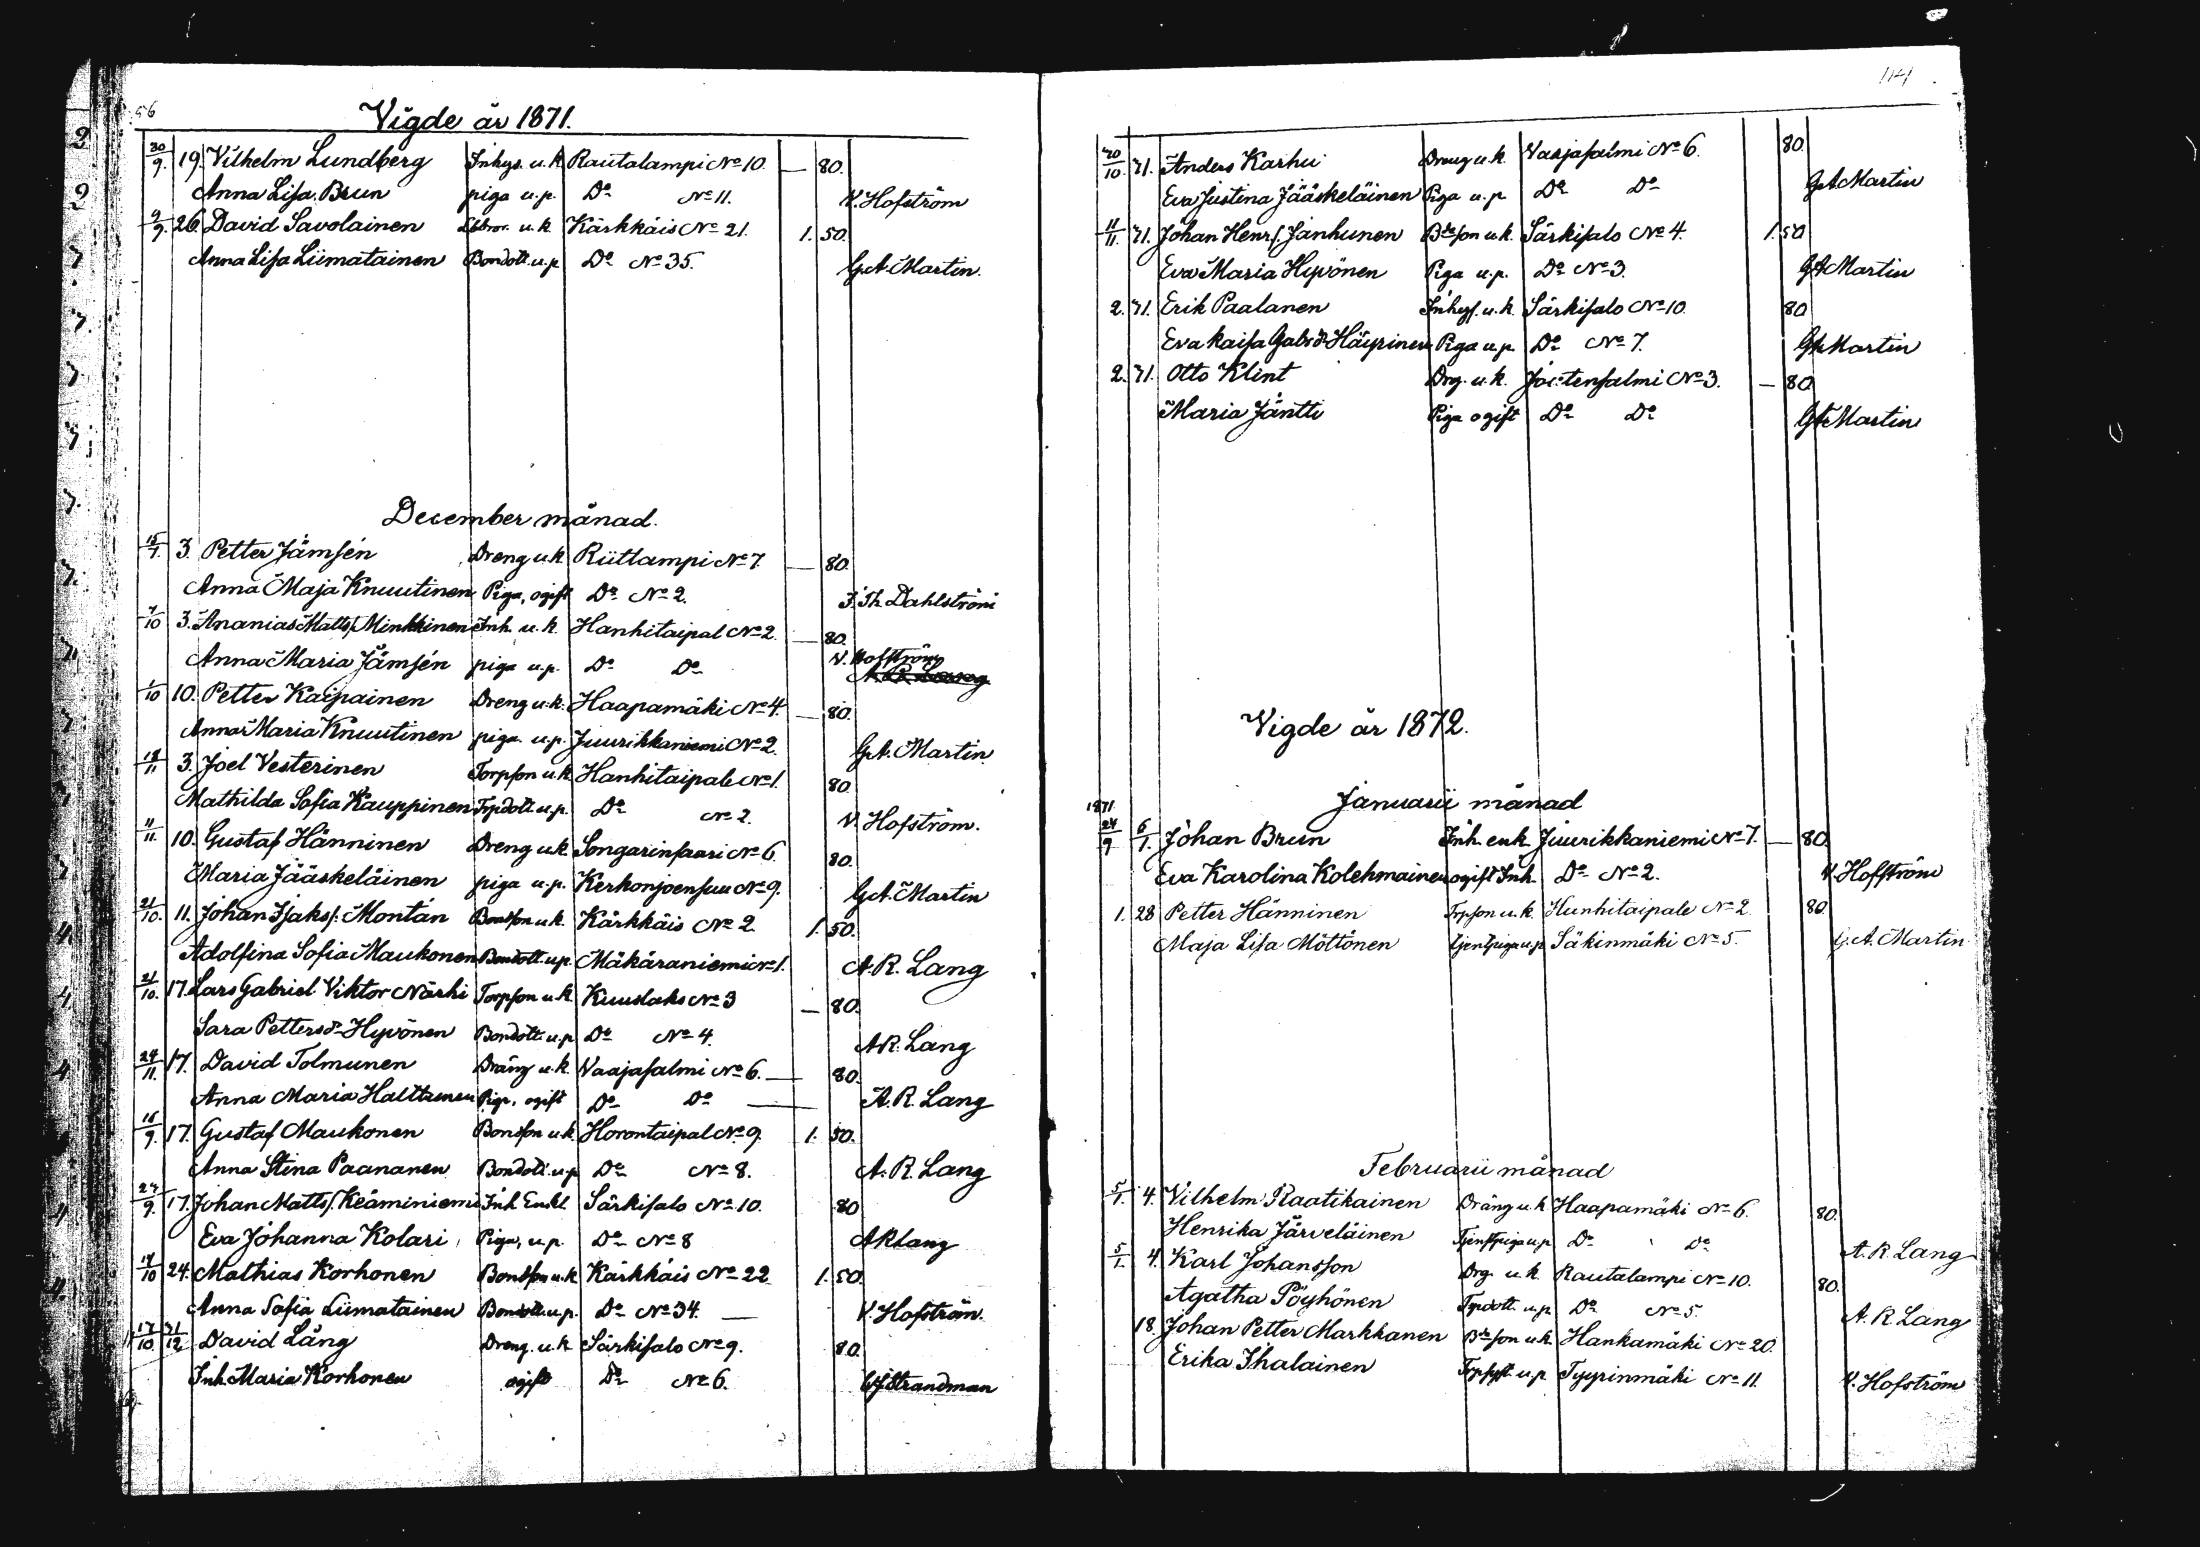 56
Vigde år 1871.
30/9. 19. Vilhelm Lundberg Inhys. u.k. Rautalampi No 10. — 80.
Anna Lisa Brun piga u.p. Do No 11. V. Hofström
9/9. 26. David Savolainen u.k. Kärkkäis No 21. 1. 50.
Anna Lisa Liimatainen Bondott. u.p Do No 35. G.A. Martin.
December månad.
15/7. 3. Petter Jämsén Dreng u.k. Riittlampi No 7. — 80.
Anna Maja Knuutinen Piga, ogift Do No 2. J. Th. Dahlström
7/10 3. Ananias Matts/. Minkkinen Inh. u.k. Hanhitaipal No 2. — 80.
Anna Maria Jämsén piga u.p. Do Do V. Hofström
1/10 10. Petter Kaipainen Dreng u.k. Haapamäki No 4. — 80.
Anna Maria Knuutinen piga. u.p. Juurikkaniemi No 2. G.A. Martin.
18/11 3. Joel Vesterinen Torpson u.k. Hanhitaipale No 1. 80.
Mathilda Sofia Kauppinen Trpdott. u.p. Do No 2. V. Hofström.
11/11. 10. Gustaf Hänninen Dreng u.k. Songarinsaari No 6. 80.
Maria Jääskeläinen piga u.p. Kerkonjoensuu No 9. G.A. Martin
21/10. 11. Johan Isaks/: Montán Bondson u.k. Kärkkäis No 2. 1. 50.
Adolfina Sofia Maukonen Bondott. u.p. Mäkäraniemi No 1. A.R. Lang
21/10. 17. Lars Gabriel Viktor Närhi Torpson u.k. Kuuslaks No 3 — 80.
Sara Pettersdr Hyvönen Bondott. u.p Do No 4. A.R. Lang
24/11. 17. David Tolmunen Dräng u.k. Vaajasalmi No 6. — 80.
Anna Maria Halttunen Piga, ogift Do Do — A.R. Lang
16/9. 17. Gustaf Maukonen Bondson u.k. Horontaipal No 9. 1. 50.
Anna Stina Paananen Bondott. u.p Do No 8. A.R. Lang
24/9. 17. Johan Matts/. Keäminiemi Inh. Enkl. Särkisalo No 10. 80
Eva Johanna Kolari Piga, u.p. Do No 8 A R Lang
14/10 24. Mathias Korhonen Bondson u.k Kärkkäis No 22. 1. 50.
Anna Sofia Liimatainen Bondott. u.p. Do No 34. — V. Hofström.
17/10. 31/12 David Lång Dreng. u.k. Särkisalo No 9. 80.
Inh. Maria Korhonen ogift Do No 6. Strandman
114
30/10. 31. Anders Karhu Dreng u.k. Vaajasalmi No 6. 80.
Eva Justina Jääskeläinen Piga u.p. Do Do G A Martin
11/11. 31. Johan Henr/. Janhunen Bdeson u.k. Särkisalo No 4. 1. 50
Eva Maria Hyvönen Piga u.p. Do No 3. G A Martin
2. 31. Erik Paalanen Inhys. u.k. Särkisalo No 10. 80
Eva Kaisa Gabrdr Häyrinen Piga u.p. Do No 7. G A Martin
2. 31. Otto Klint Drg. u.k. No 3. — 80
Maria Jäntti Piga ogift Do Do G A Martin
Vigde år 1872.
Januarii månad
1871
24/9 6/1. Johan Brun Inh. enk. Juurikkaniemi No 7. — 80.
Eva Karolina Kolehmainen ogift Inh. Do No 2. V. Hofström
1. 28 Petter Hänninen Trpson u.k. Hunhitaipale No 2. 80
Maja Lisa Möttönen tjenstpiga u.p Säkinmäki No 5. G.A. Martin
Februarii månad
5/1. 4. Vilhelm Raatikainen Dräng u.k Haapamäki No 6. 80.
Henrika Järveläinen Tjenstpiga u.p Do Do A.R. Lang
5/1. 4. Karl Johansson Drg. u.k. Rautalampi No 10. 80.
Agatha Pöyhönen Trpdott. u.p Do No 5. A.R. Lang
18. Johan Petter Markkanen Bdeson u.k. Hankamäki No 20.
Erika Ihalainen u.p Tyyrinmäki No 11. V. Hofström